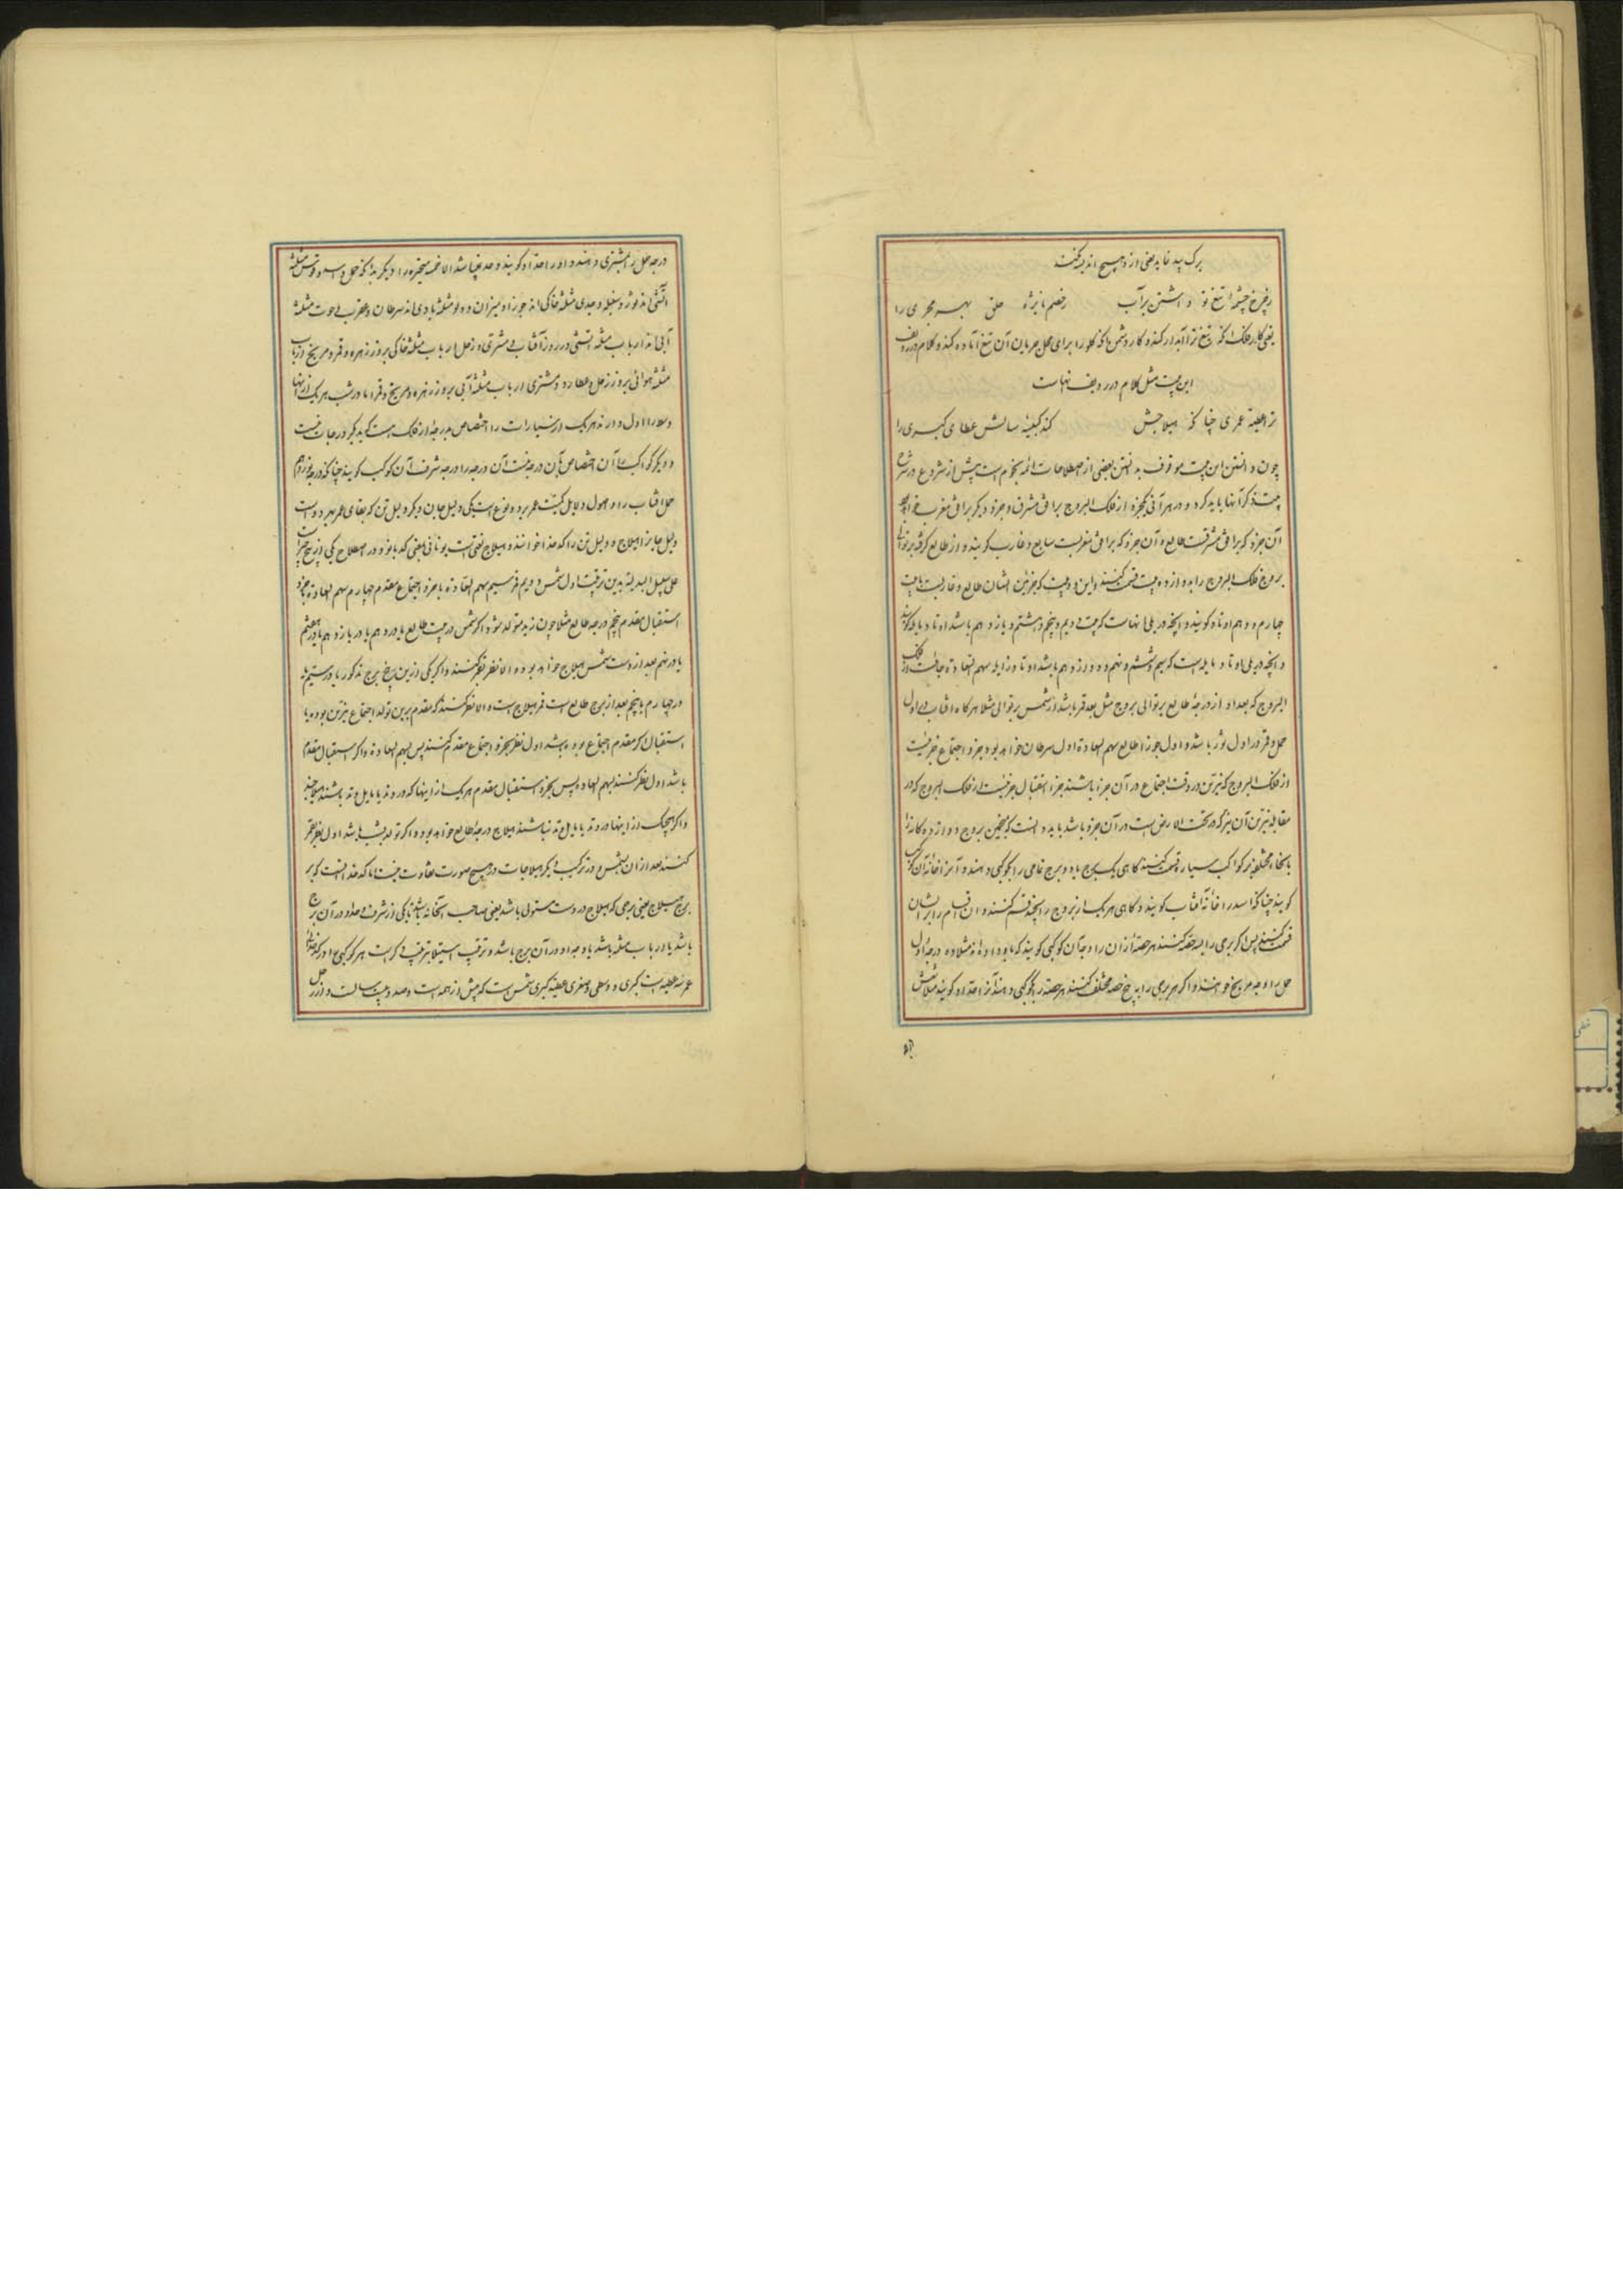 برک بید نماید یعنی از و هیچ اندیشه نکند
ز چرخ چشمهٔ تیغ تو داشتن پر آب ز خصم نایژهٔ حلق بهر مجری را
یعنی کار فلک آنکه تیغ ترا آبدار کند و کار دشمن آنکه گلو را برای محل جریان آن تیغ آماده کند و کلام در ردیف
این بیت مثل کلام در ردیف نهاست
ترا عطیهٔ عمری چنانکه هیلاجش کند کبیسهٔ سالش عطای کبری را
چون دانستن این بیت موقوف بدانستن بعضی از اصطلاحات ائمهٔ نجوم است پیش از شروع در شرح
بیت ذکر آنها باید کرد و در هر آنی یکجزو از فلک البروج بر افق مشرق و جزو دیگر بر افق مغرب خواهد بود
آن جزو که بر افق مشرقست طالع و آن جزو که بر افق مغربست سابع و غارب گویند و از طالع گرفته بر توالی
بروج فلک البروج را بدوازده بیت قسمت کنند و این دو بیت که جزئین ایشان طالع و غاربست با بیت
چهارم و دهم اوتاد گویند و آنچه در یلی آنهاست که بیت دویم و پنجم و هشتم و یازدهم باشد اوتاد مایله گویند
و آنچه در یلی اوتاد مایله است که سیم و ششم و نهم و دوازدهم باشد اوتاد زایله سهم السعاده جائیست از فلک
البروج که بعد او از درجهٔ طالع بر توالی بروج مثل بعد قمر باشد از شمس بر توالی مثلا هرگاه آفتاب در اول
حمل و قمر در اول ثور باشد و اول جوزا طالع سهم السعاده اول سرطان خواهد بود و جزو اجتماع جزئیست
از فلک البروج که نیرین در وقت اجتماع در آن جزء باشند جزء استقبال جزئیست از فلک البروج که در
مقابله نیرین آن نیر که در تحت الارض است در آن جزو باشد باید دانست که منجمین بروج دوازده گانه را
بانحاء مختلفه بر کواکب سیاره قسمت کنند گاهی یک برج یا دو برج تمامی را بکوکبی دهند و آنرا خانهٔ آن کوکب
گویند چنانکه اسد را خانهٔ آفتاب گویند و گاهی هر یک از بروج را بچند قسم کنند و آن اقسام را بر ایشان
قسمت کنند پس اگر برجی را بسه حصه کنند هر حصهٔ از آن را وجه آن کوکبی گویند که باو داده‌اند مثلا ده درجهٔ اول
حمل را وجه مریخ خوانند و اگر هر برجی را به پنج حصه مختلف کنند هر حصه را بکوکبی دهند آنرا حد او گویند مثلا شش
درجه
درجه حمل را بمشتری دهند و او را حد او گویند و حد نباشد الا خمسهٔ متحیره را دیگر بدانکه حمل و اسد و قوس مثلثهٔ
آتشی‌اند و ثور و سنبله و جدی مثلثه خاکی‌اند جوزا و میزان و دلو مثلثهٔ بادی‌اند سرطان و عقرب و حوت مثلثهٔ
آبی‌اند ارباب مثلثه آتشی در روز آفتاب و مشتری و زحل ارباب مثلثهٔ خاکی بروز زهره و قمر و مریخ و ارباب
مثلثه هوائی بروز زحل و عطارد و مشتری ارباب مثلثهٔ آبی بروز زهره و مریخ و قمر اما در شب هر یک از آنها
و دیگر کواکب را آن اختصاص بآن درجه نیست آن درجه را درجه شرف آن کوکب گویند چنانکه درجه نوزدهم
حمل آفتاب را و اصول دلایل کمیت عمر بر دو نوع است یکی دلیل جان و دیگر دلیل تن که بقای عمر بهر دو است
دلیل جانرا هیلاج و دلیل تن را کدخدا خوانند و هیلاج لغتی است یونانی بمعنی کدبانو و در اصطلاح یکی از پنج چیز است
علی سبیل البدلیه بدین ترتیب اول شمس دویم قمر سیم سهم السعاده یا جزو اجتماع مقدم چهارم سهم السعاده یا جزو
استقبال مقدم پنجم درجه طالع مثلا چون زید متولد شود اگر شمس در بیت طالع یا در دهم یا در یازدهم یا در هفتم
یا در نهم بعد از وست شمس هیلاج خواهد بود و الا نظر بقمر کنند و اگر یکی ازین پنج برج مذکور یا در سیم یا
در چهارم یا پنجم بعد از برج طالع است قمر هیلاج است و الا نظر کنند که مقدم برین تولد اجتماع نیرین بوده یا
استقبال اگر مقدم اجتماع بوده باشد اول نظر بجزو اجتماع مقدم کنند پس بسهم السعاده و اگر استقبال مقدم
باشد اول نظر کنند بسهم السعاده پس بجزو استقبال مقدم هر یک از اینها که در وتد یا مایل وتد باشند هیلاجند
و اگر هیچیک از اینها در وتد یا مایل وتد نباشند هیلاج درجهٔ طالع خواهد بود و اگر تولد بشب باشد اول نظر بقمر
کنند بعد از آن بشمس و در ترکیب دیگر هیلاجات در هیچ صورت تفاوت نیست اما کدخدا آنست که بر
برج هیلاج یعنی برجی که هیلاج در وست مستولی باشد یعنی صاحب آنخانه باشد یا کی از شرف و حد او در آن برج
باشد یا ارباب مثلثه باشد یا وجه او در آن برج باشد و ترتیب استیلا بترتیب ذکر است هر کوکبی را در کدخدائی
عمر سه عطیه است کبری و وسطی و صغری عطیهٔ کبری شمس است که بیش از همه است و صد و بیست سالست و از زحل